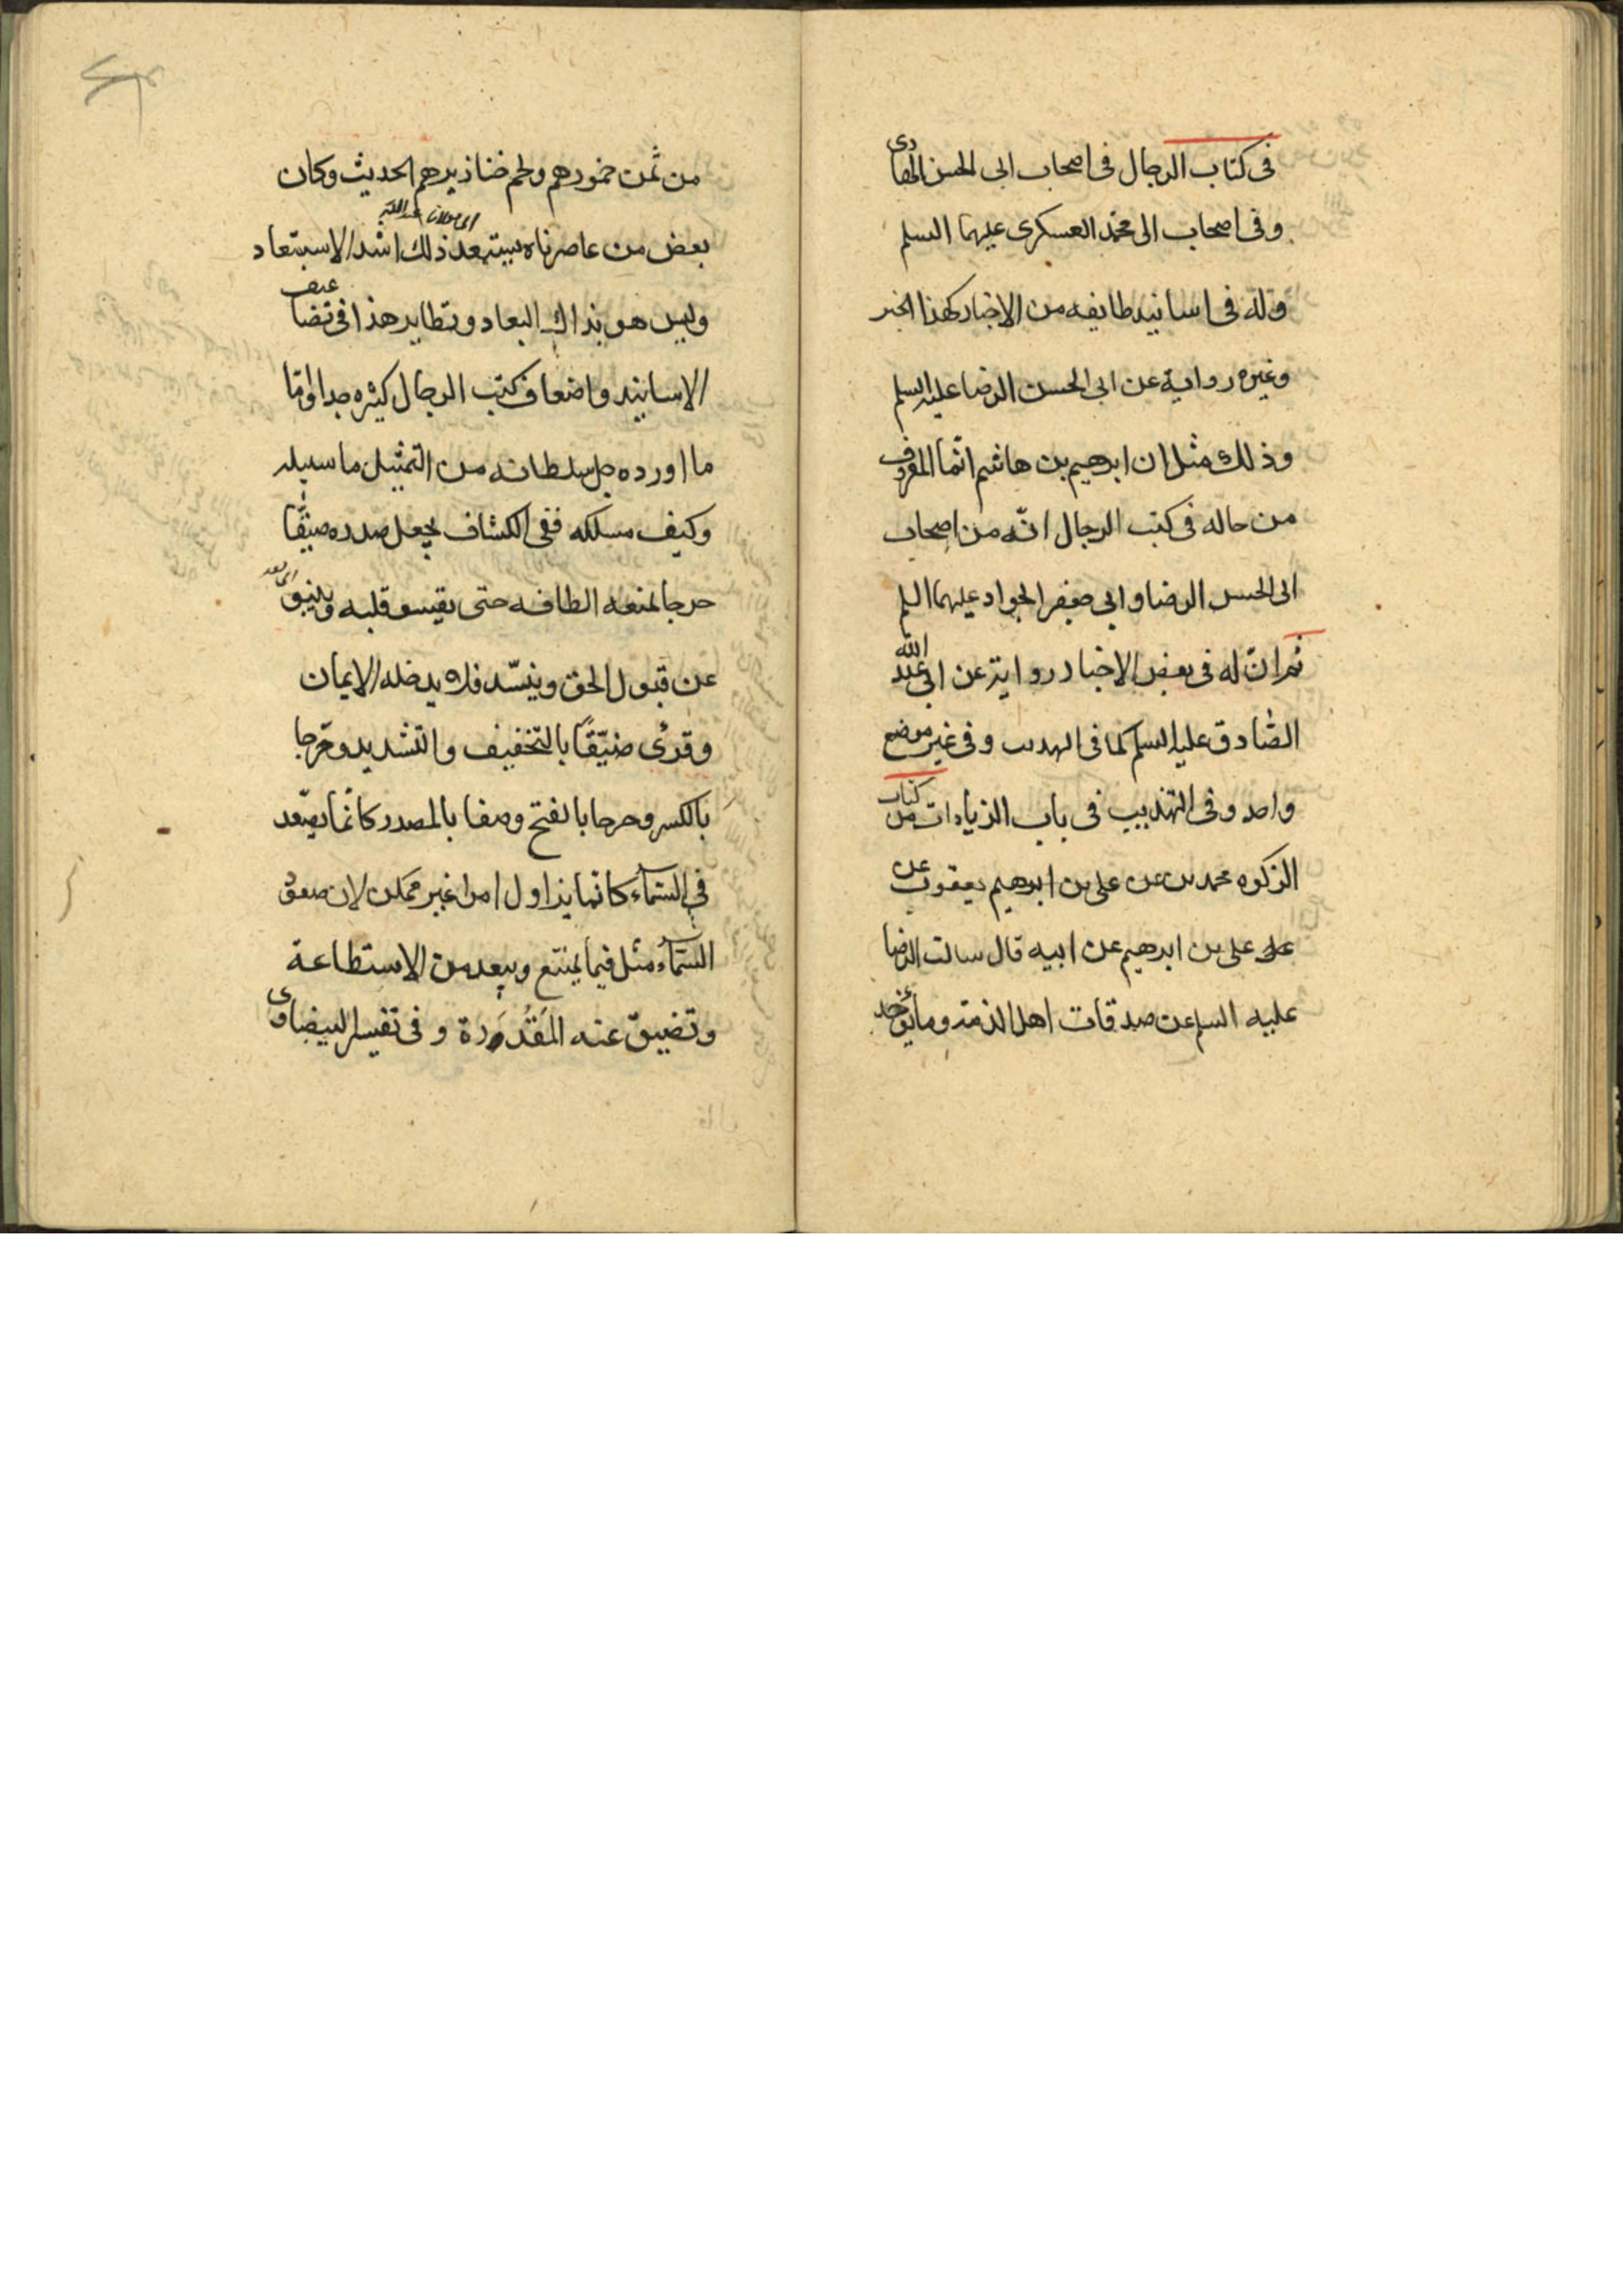 فى كتاب الرجال فى اصحاب ابى الحسن الهادى
وفى اصحاب ابى محمد العسكرى عليهما السلم
وله فى اسانيد طايفه من الاخبار كهذا الخبر
وغيره رواية عن ابى الحسن الرضا عليه السلم
وذلك مثل ان ابرهيم بن هاشم انما المعروف
من حاله فى كتب الرجال انّه من اصحاب
ابى الحسن الرضا وابى جعفر الجواد عليهما السلم
ثم ان له فى بعض الاخبار رواية عن ابى عبد الله
الصّادق عليه السلم كما فى التهذيب وفى غير موضع
واحد وفى التهذيب فى باب الزيادات من كتاب
الزكوه محمد بن عن على بن ابرهيم يعقوب عن
على بن ابرهيم عن ابيه قال سالت الرضا
عليه السلم عن صدقات اهل الذمة وما يؤخذ
من ثمن خمورهم ولحم خنازيرهم الحديث وكان
بعض من عاصرناه يستبعد ذلك اشد الاستبعاد
وليس هو بذاك البعاد ونظاير هذا فى تضاعيف
الاسانيد واضعاف كتب الرجال كثيره جدا وامّا
ما اورده جل سلطانه من التمثيل ما سبيله
وكيف مسلكه ففى الكشاف يجعل صدره ضيّقًا
حرجا يمنعه الطافه حتى يقسو قلبه وينبو
عن قبول الحق وينسّد فلا يدخله الايمان
وقرئ ضيّقًا بالتخفيف والتشديد وحرجا
بالكسر وحرجا بالفتح وصفا بالمصدر كانّما يصّعد
فى السّماء كانما يزاول امرا غير ممكن لان صعود
السّماء مثل فيما يمتنع ويبعد من الاستطاعة
وتضيق عنه المَقْدُرة وفى تفسير البيضاوى